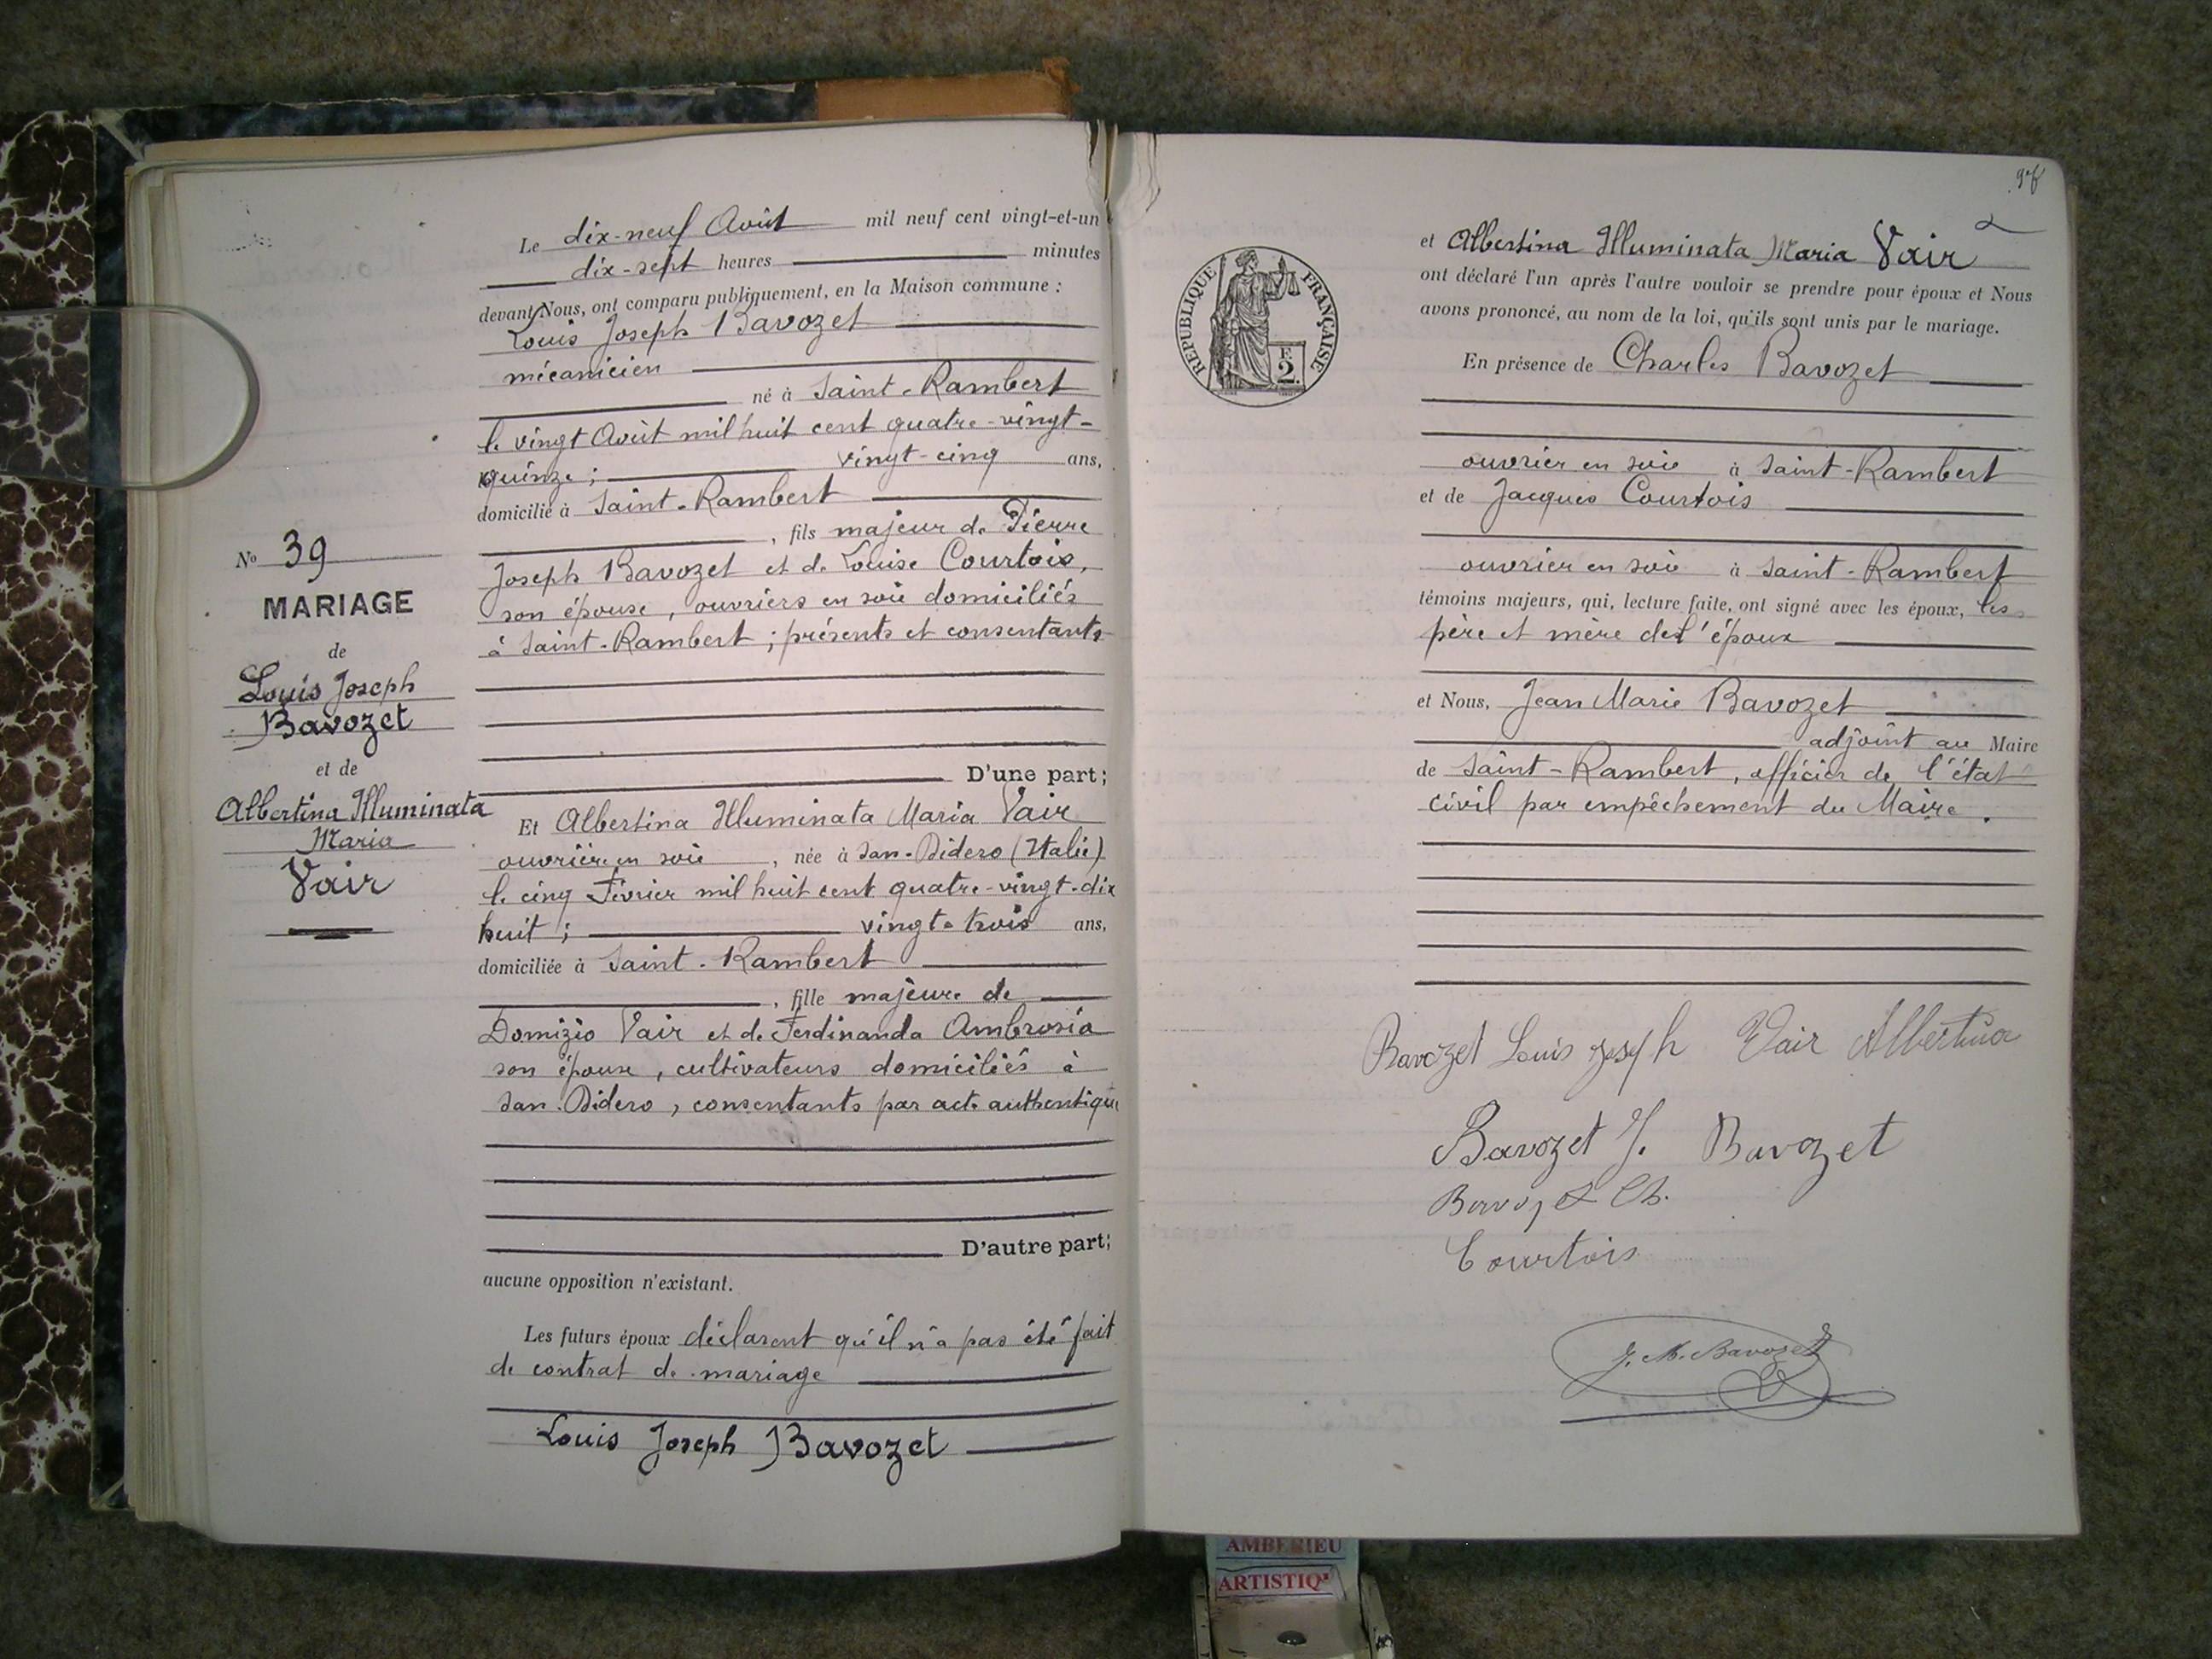 Le dix-neuf Août mil neuf cent vingt-et-un
dix-sept heures minutes
devant Nous, ont comparu publiquement, en la Maison commune :
Louis Joseph Bavozet
mécanicien
né à Saint-Rambert
le vingt Août mil huit cent quatre-vingt-
quinze ; vingt-cinq ans,
domicilié à Saint-Rambert
, fils majeur de Pierre
Joseph Bavozet et de Louise Courtois,
son épouse, ouvriers en soie domiciliés
à Saint-Rambert ; présents et consentants
D'une part;
Et Albertina Illuminata Maria Vair
ouvrière en soie , née à San-Didero (Italie)
le cinq Février mil huit cent quatre-vingt-dix
huit ; vingt-trois ans,
domiciliée à Saint-Rambert
, fille majeure de
Domizio Vair et de Ferdinanda Ambrosia
son épouse, cultivateurs domiciliés à
San-Didero, consentants par acte authentique
D'autre part;
aucune opposition n'existant.
Les futurs époux déclarent qu'il n'a pas été fait
de contrat de mariage
Louis Joseph Bavozet
No 39
MARIAGE
de
Louis Joseph
Bavozet
et de
Albertina Illuminata
Maria
Vair
RÉPUBLIQUE FRANÇAISE
F.
2.
et Albertina Illuminata Maria Vair
ont déclaré l'un après l'autre vouloir se prendre pour époux et Nous
avons prononcé, au nom de la loi, qu'ils sont unis par le mariage.
En présence de Charles Bavozet
ouvrier en soie à Saint-Rambert
et de Jacques Courtois
ouvrier en soie à Saint-Rambert
témoins majeurs, qui, lecture faite, ont signé avec les époux, les
père et mère de l'époux
et Nous, Jean Marie Bavozet
adjoint au Maire
de Saint-Rambert, officier de l'état
civil par empêchement du Maire.
Bavozet Louis Joseph Vair Albertina
Bavozet J. Bavozet
Bavozet Ch.
Courtois
J. M. Bavozet
AMBERIEU
ARTISTIQ